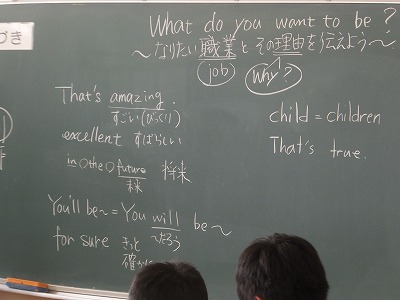 づき
What do you want to be?
～なりたい職業とその理由を伝えよう～
job
Why?
That's amazing.
すごい(びっくり)
excellent すばらしい
in the future 将来
未来
You'll be～=You will be～
～だろう
for sure きっと
確か
child = children
That's true.